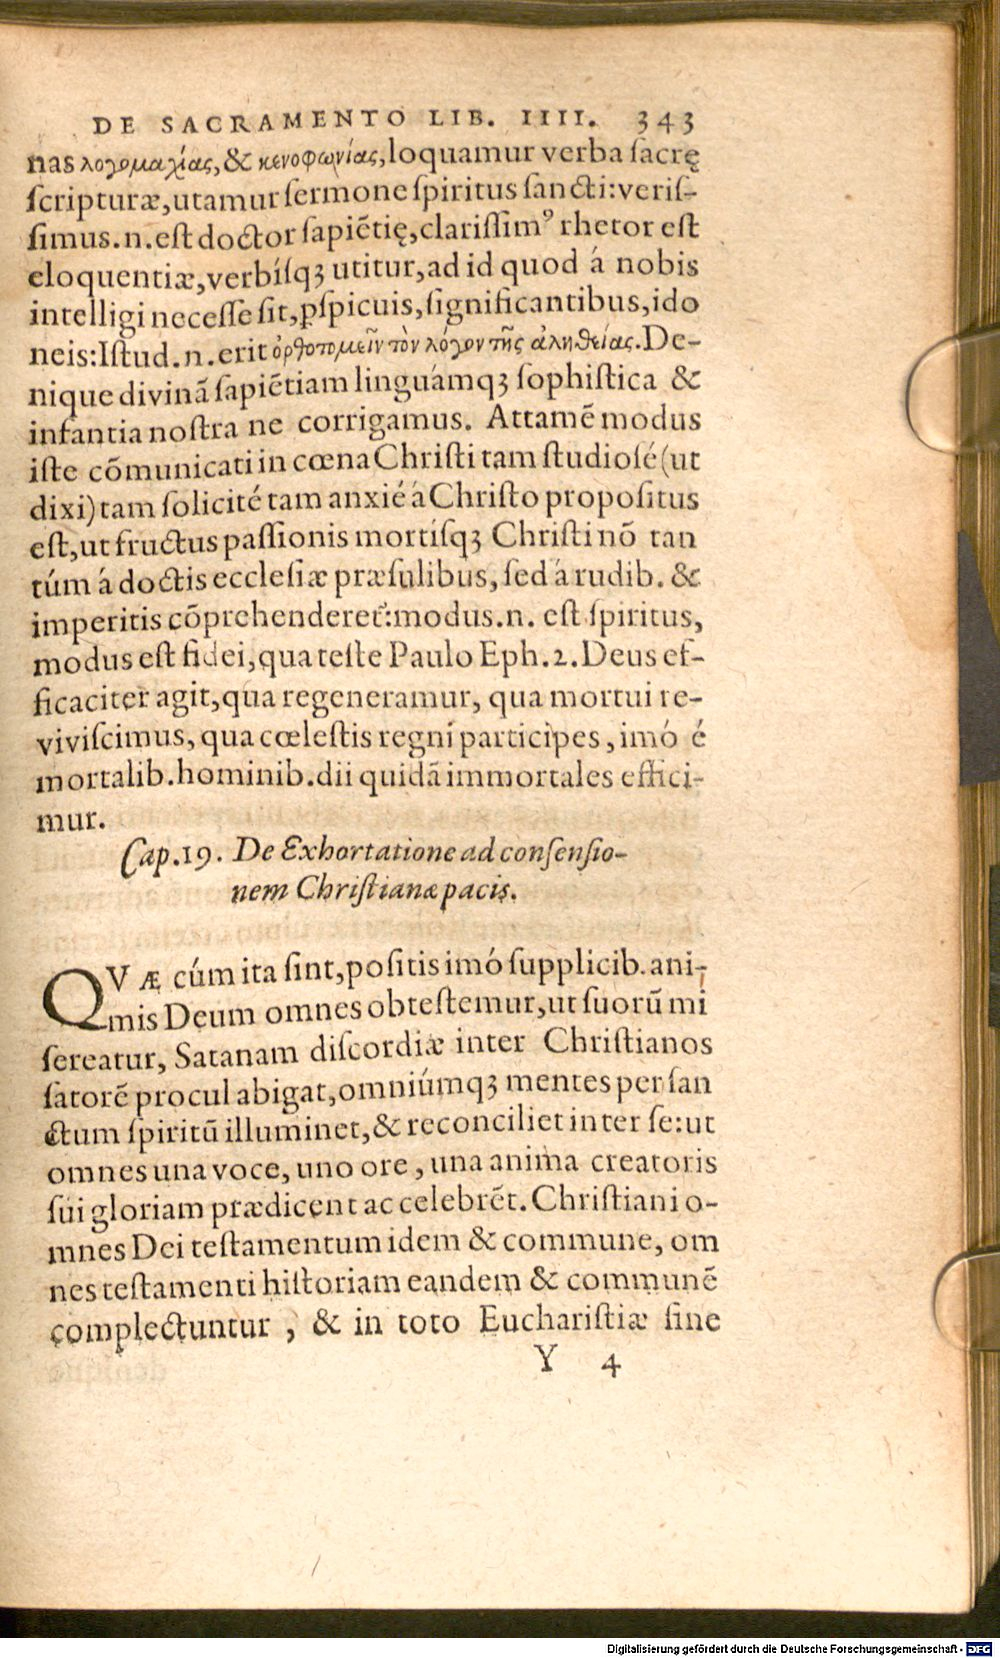 DE SACRAMENTO LIB. IIII. 343
nas λογομαχίας, & κενοφωνίας, loquamur verba sacrę
scripturæ, utamur sermone spiritus sancti: veris-
simus.n.est doctor sapiẽtię, clarissimꝰ rhetor est
eloquentiæ, verbísqꝫ utitur, ad id quod á nobis
intelligi necesse sit, ꝑspicuis, significantibus, ido
neis: Istud.n.erit ὀρθοτομεῖν τὸν λόγον τῆς ἀληθείας. De-
nique divinã sapiẽtiam linguámqꝫ sophistica &
infantia nostra ne corrigamus. Attamẽ modus
iste cõmunicati in cœna Christi tam studiosé (ut
dixi) tam solicité tam anxié á Christo propositus
est, ut fructus passionis mortísqꝫ Christi nõ tan
túm á doctis ecclesiæ præsulibus, sed á rudib. &
imperitis cõprehenderet᷑: modus.n. est spiritus,
modus est fidei, qua teste Paulo Eph.2. Deus ef-
ficaciter agit, qua regeneramur, qua mortui re-
viviscimus, qua cœlestis regni participes, imó é
mortalib. hominib. dii quidã immortales effici-
mur.
Cap.19. De Exhortatione ad consensio-
nem Christianæ pacis.
QVÆ cúm ita sint, positis imó supplicib. ani-
mis Deum omnes obtestemur, ut suorũ mi
sereatur, Satanam discordiæ inter Christianos
satorẽ procul abigat, omniúmqꝫ mentes per san
ctum spiritũ illuminet, & reconciliet inter se: ut
omnes una voce, uno ore, una anima creatoris
sui gloriam prædicent ac celebrẽt. Christiani o-
mnes Dei testamentum idem & commune, om
nes testamenti historiam eandem & communẽ
complectuntur, & in toto Eucharistiæ sine
Y 4
Digitalisierung gefördert durch die Deutsche Forschungsgemeinschaft - DFG